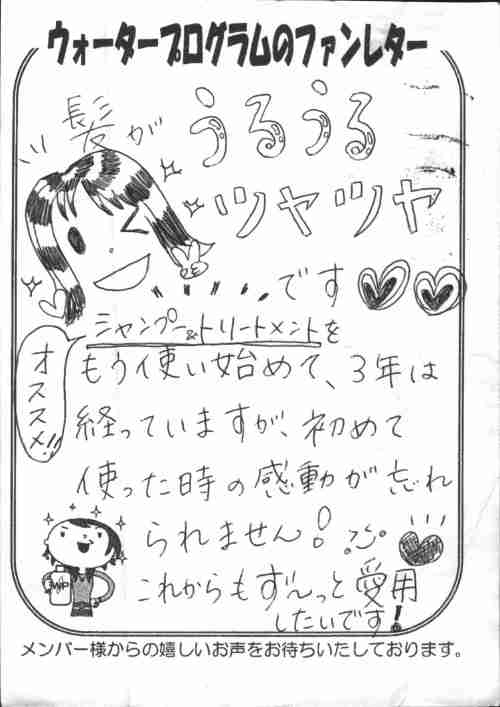 ウォータープログラムのファンレター
髪が
うるうる
ツヤツヤ
です
シャンプー&トリートメントを
オススメ!!
もう使い始めて、3年は
経っていますが、初めて
使った時の感動が忘れ
られません!
これからもずーっと愛用
したいです!
WP
メンバー様からの嬉しいお声をお待ちいたしております。